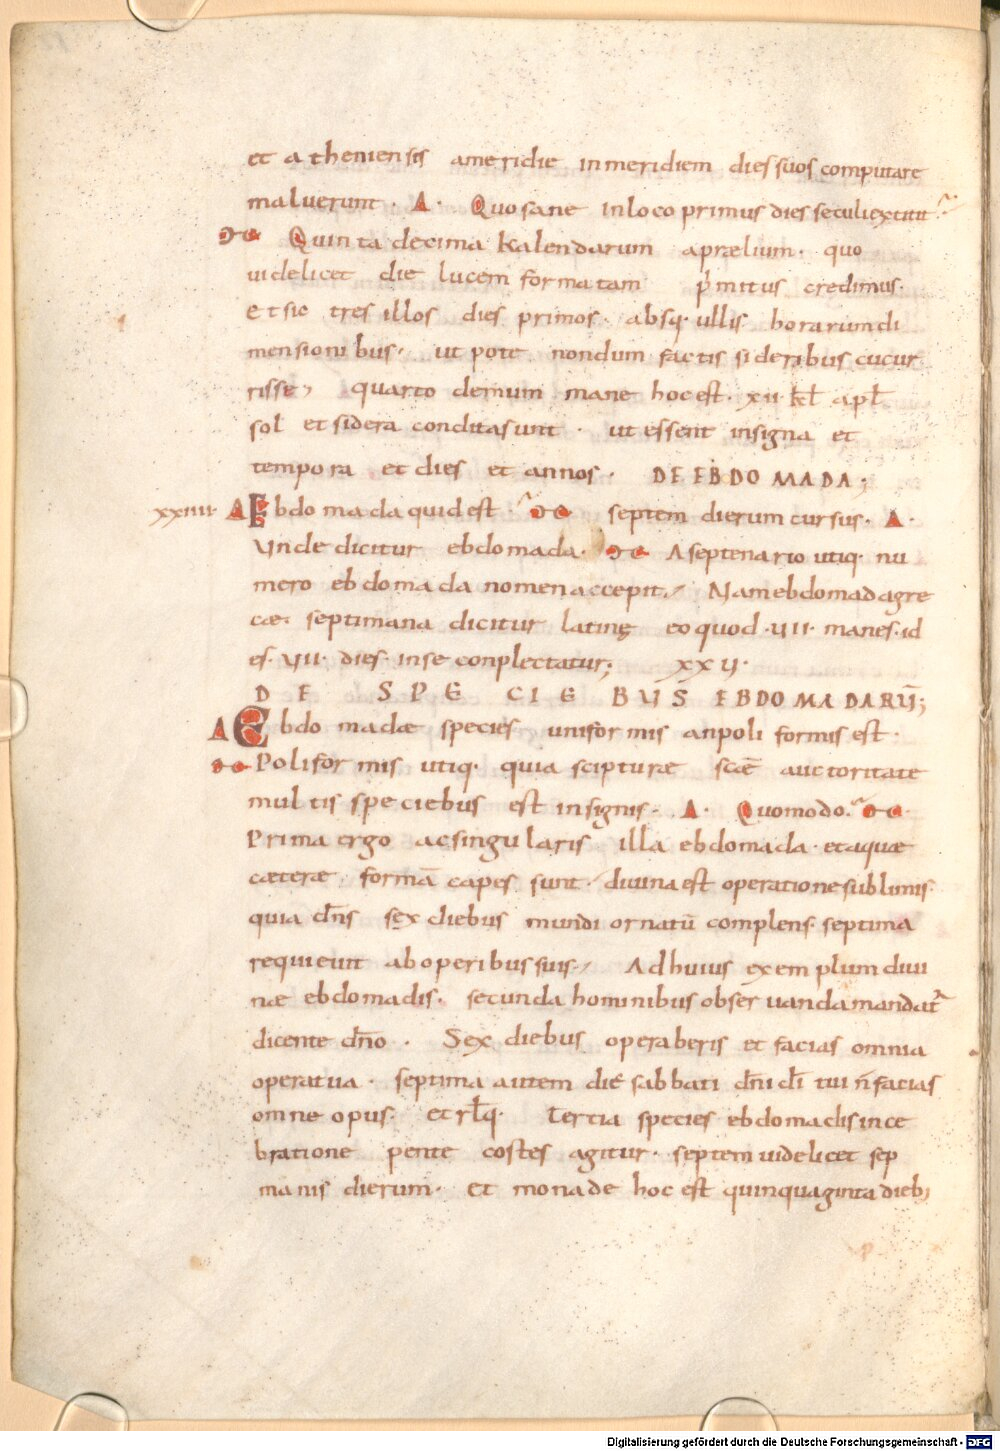 et atheniensis ameridie inmeridiem dies suos computare
maluerunt · Δ · Quo sane inloco primus dies seculi extitit
Quinta decima kalendarum apraelium · quo
uidelicet die lucem formatam p̍mitus credimus ·
Et sic tres illos dies primos · absq· ullis horarum di
mensionibus · ut pote nondum factis sideribus cucur
risse, quarto demum mane hoc est · xii · kł apł
sol et sidera condita sunt · ut essent insigna et
tempora et dies et annos · DE EBDOMADA;
xxiiii · Δ Ebdomada quid est · septem dierum cursus · Δ ·
Vnde dicitur ebdomada · Aseptenario utiq· nu
mero ebdomada nomen accepit, Nam ebdomada gre
cae septimana dicitur latinę eo quod · VII · manes · id
es · VII · dies · inse conplectatur; xxV ·
DE SPECIEBUS EBDOMADARŪ;
Δ Ebdomadae species uniformis anpoliformis est ·
Poliformis utiq· quia scipturae scāē auctoritate
multis speciebus est insignis · Δ · Quomodo
Prima ergo acsingularis illa ebdomada · et aquae
caeterae formā capes sunt · diuina est operatione sublimis
quia dn̄s sex diebus mundi ornatū complens septima
requieuit ab operibus suis, Ad huius exemplum diui
nae ebdomadis · secunda hominibus obseruanda mandat̃
dicente dn̄o · Sex diebus operaberis et facias omnia
operatua · septima autem die sabbati dn̄i dī tui n̄ facias
omne opus · et rłq· tertia species ebdomadis ince
bratione pente costes agitur · septem uidelicet sep
manis dierum · et monade hoc est quinquaginta dieb;
Digitalisierung gefördert durch die Deutsche Forschungsgemeinschaft - DFG